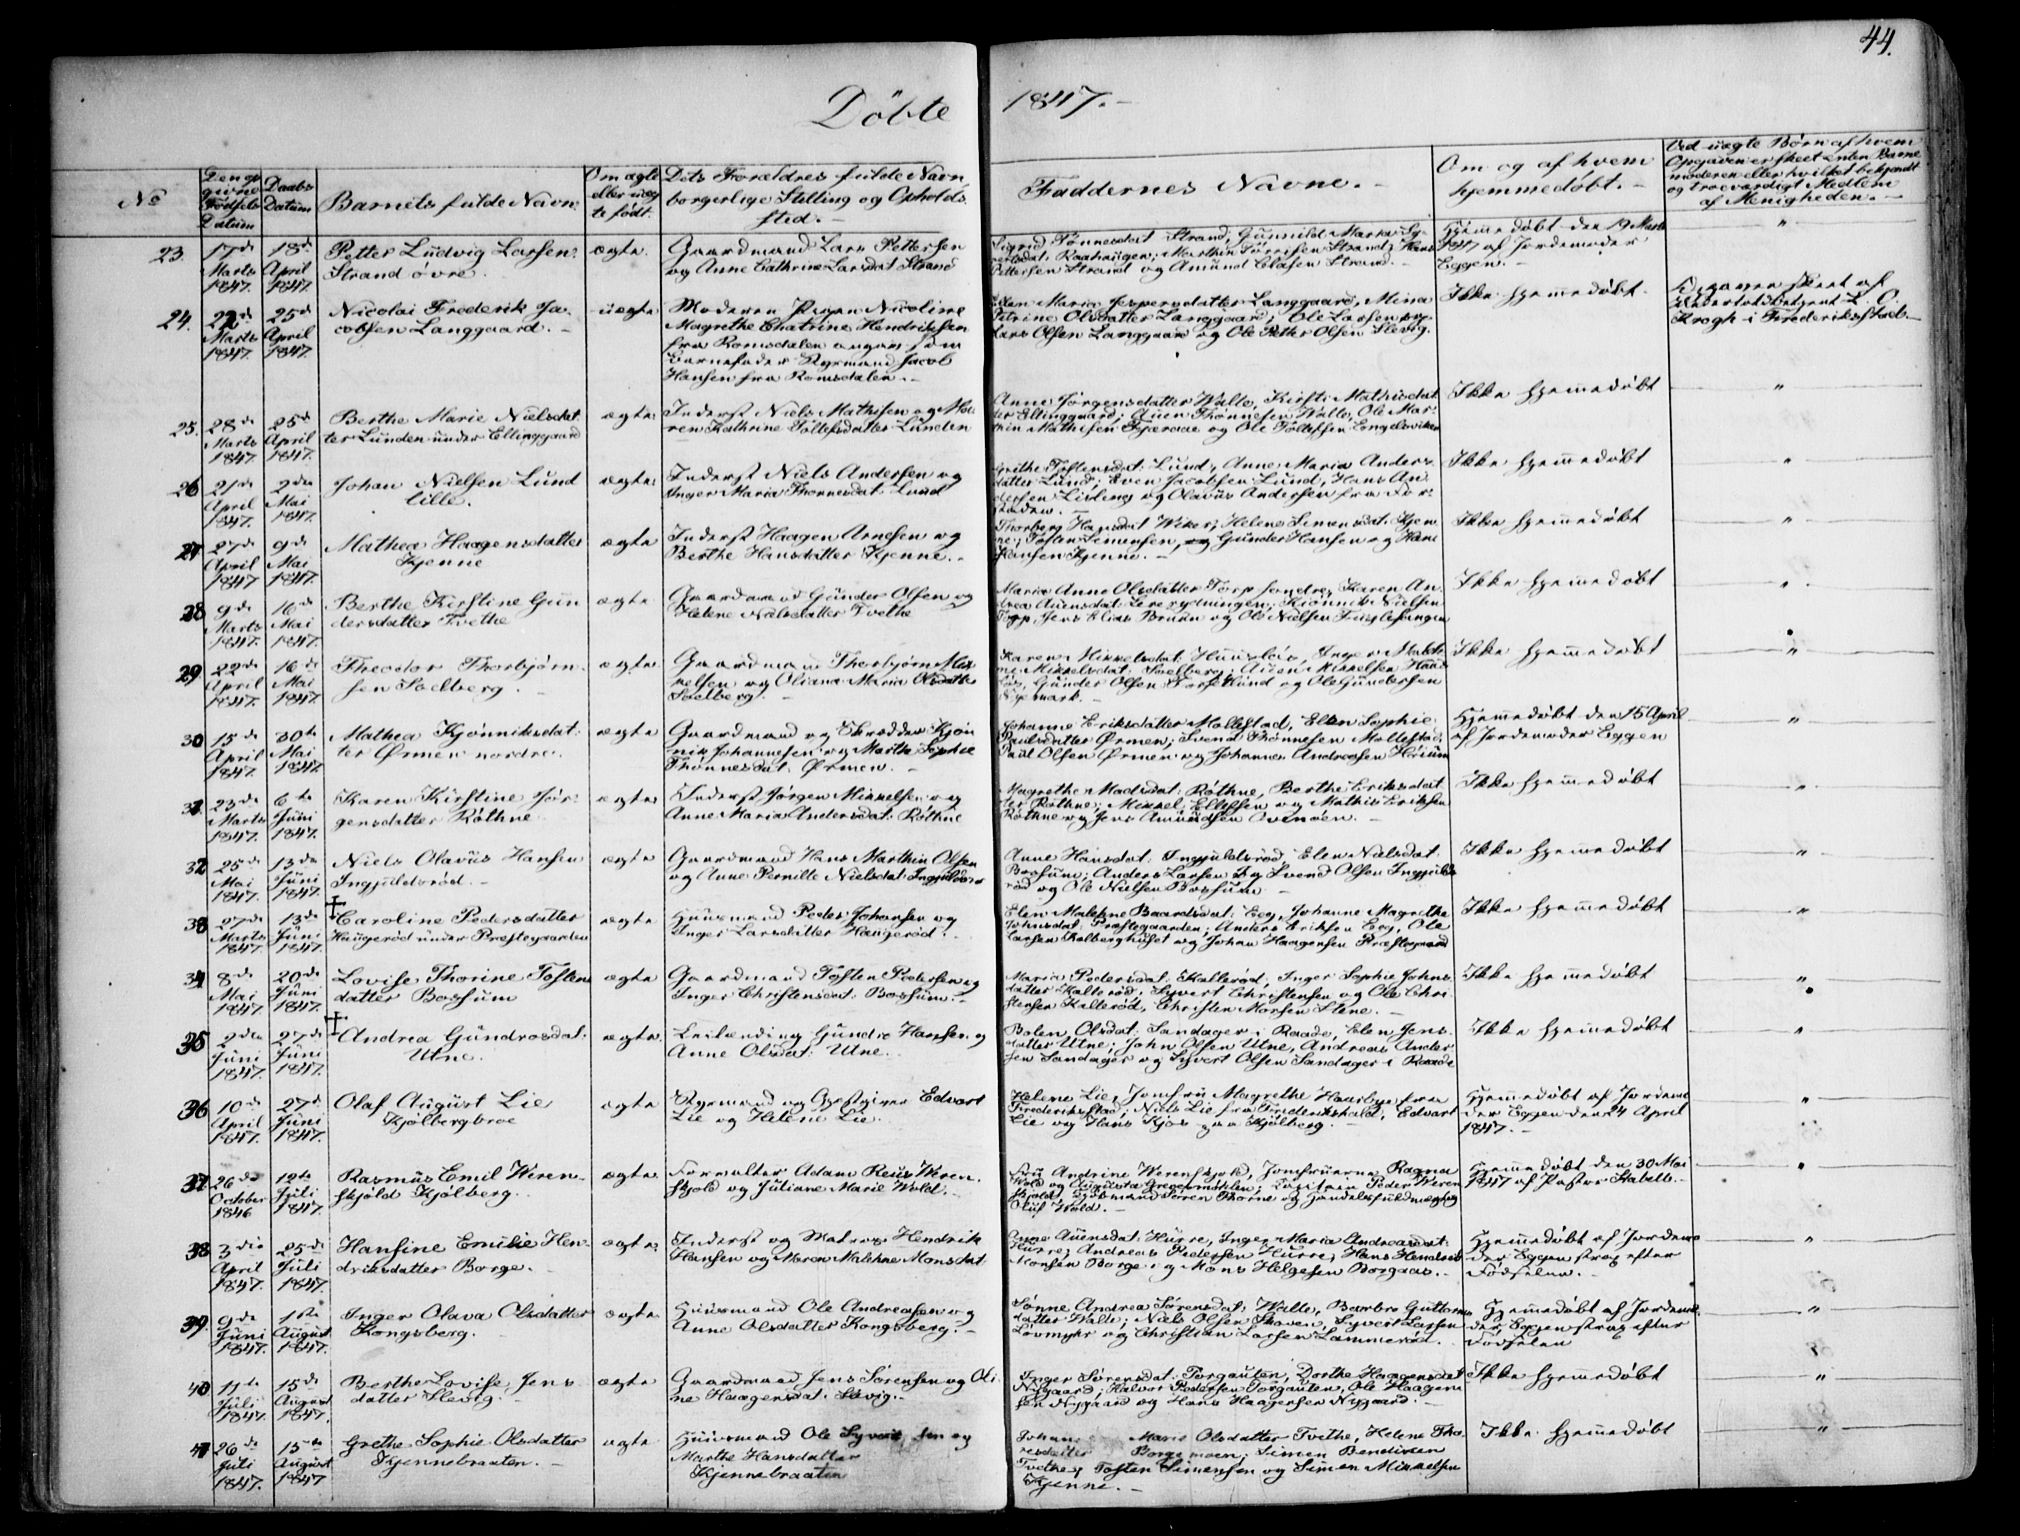 44.
Döbte 1847.-
No
Den op
givne
Fødsels
Datum
Daabs
Datum
Barnets fulde Navn
Om ægte
eller uæg
te født
Dets Forældres fulde Navn
borgerlige Stilling og Opholds
sted.-
Faddernes Navne.-
Om og af hvem
hjemmedøbt.-
Ved uægte Børn af hvem
Opgaven er skeet enten Barne
moderen eller hvilket bekjendt
og troeværdigt Medlem
af Menigheden.-
23.
17de
Marts
1847.
18de
April
1847
Petter Ludvig Larsen
Strand øvre.
ægte.
Gaardmand Lars Pettersen
og Anne Cathrine Larsdat Strand
Sigrid Tønnesdat Strand, Gunnild Maria Sy-
vertsdat: Raahaugen; Marthin Torrisen Strand; Hans
Pettersen Strand og Amund Olafsen Strand.-
Hjemedøbt den 19 Marts
1847 af Jordemoder
Eggen.-
"
24.
22de
Marts
1847
25de
April
1847
Nicolai Frederik Ja-
cobsen Langgaard.-
uægte
Moderen Pigen Nicoline
Magrethe Chatrine Hendriksen
fra Romsdalen angav som
Barnefader Styrmand Jacob
Hansen fra Romsdalen.-
Elen Maria Jespersdatter Langgaard, Mina
Petrine Olsdatter Langgaard; Ole Larsen og
Lars Olsen Langgaard og Ole Petter Olsen Slevig.
Ikke hjemedøbt.
Opgaven skeet af
Undertoldbetjent L. O.
Krogh i Frederikstad.-
25.
28de
Marts
1847
25de
April
1847.
Berthe Marie Nielsdat
ter Lunden under Ellinggaard
ægte
Inderst Niels Mathisen og Ma-
ren Kathrine Tollefsdatter Lunden
Anne Jørgensdatter Walle, Kirsti Mathisdat
ter Ellinggaard; Auen Thønnesen Walle, Ole Mar-
thin Mathisen Fjæraae og Ole Tollefsen Engelsviken
Ikke hjemedøbt
"
26
21de
April
1847.
2den
Mai
1847.
Johan Nielsen Lund
lille.
ægte
Inderst Niels Andersen og
Inger Maria Thonnesdat. Lund
Grethe Tostensdat: Lund, Anne Maria Anders-
datter Lund; Even Jacobsen Lund, Hans An-
dersen Lisleng og Olavus Andersen fra For-
staden.-
Ikke hjemedøbt
"
27
27de
April
1847
9de
Mai
1847.
Mathea Haagensdatter
Kjenne
ægte
Inderst Haagen Arnesen og
Berthe Hansdatter Kjenne.-
Thorberg Hansdat Wiker; Helene Simensdat: Kjen
ne; Tosten Simensen, og Gunder Hansen og Hans
Hansen Kjenne.-
Ikke hjemedøbt
"
28
9de
Marts
1847.
16de
Mai
1847.
Berthe Kirstine Gun
dersdatter Tvethe
ægte
Gaardmand Gunder Olsen og
Helene Nielsdatter Tvethe
Maria Anne Olsdatter Torp søndre, Karen An-
drea Auensdat: Lererydningen; Kjønnik Nielsen
Torp, Jens Elias Bruun og Ole Nielsen Fuglesangen
Ikke hjemedøbt
"
29
22de
April
1847.
16de
Mai
1847.
Theodor Thorbjørn-
sen Soelberg.-
ægte
Gaardmand Thorbjørn Mik
kelsen og Oliana Maria Olsdatter
Soelberg.-
Karen Mikkelsdat: Huusløs, Inger Mathi-
ne Mikkelsdat: Soelberg; Auen Mikkelsen Huus-
løs, Gunder Olsen Torsetlund og Ole Gundersen
Nyemark.-
Ikke hjemedøbt
"
30
15de
April
1847.
30te
Mai
1847.
Mathea Kjønniksdat:
ter Ørmen nordre.
ægte
Gaardmand og Skrædder Kjøn
nik Johannesen og Marthe Sophie
Thønnesdat. Ørmen.-
Johanne Eriksdatter Mollestad, Elen Sophie
Paulsdatter Ørmen; Svend Thønnesen Mollestad,
Paul Olsen Ørmen og Johannes Andreasen Horium
Hjemedøbt den 15 April
af Jordemoder Eggen
"
31.
23de
Marts
1847.
6te
Juni
1847.
Karen Kirstine Jør-
gensdatter Røthne
ægte
Inderst Jørgen Mikkelsen og
Anne Maria Andersdat: Røthne
Magrethe Madsdat: Røthne, Berthe Eriksdat
ter Røthne; Mikkel Ellefsen og Mathis Eriksen
Røthne og Jens Amundsen Ovenøen.-
Ikke hjemedøbt
"
32
25de
Mai
1847.
13de
Juni
1847.
Niels Olavus Hansen
Ingjuldsrød.-
ægte
Gaardmand Hans Marthin Olsen
og Anne Pernille Nielsdat Ingjuldsrød
Anne Hansdat: Ingjuldsrød, Elen Nielsdat
Bossum; Anders Larsen og Svend Olsen Ingjulds-
rød og Ole Nielsen Bossum.-
Ikke hjemedøbt
"
33
27de
Marts
1847.
13de
Juni
1847.
Caroline Pedersdatter
Haugerød under Præstegaarden
ægte
Huusmand Peder Johansen og
Inger Larsdatter Haugerød.
Elen Malehne Baardsdat: Eeg, Johanne Magrethe
Johnsdat: Præstegaarden; Anders Eriksen Eeg, Ole
Larsen Kolberghuset og Johan Haagensen Præstegaard
Ikke hjemedøbt
"
34
8de
Mai
1847.
20de
Juni
1847.
Lovise Thorine Tosten
datter Bossum
ægte
Gaardmand Tosten Pedersen og
Inger Christensdat: Bossum.-
Maria Pedersdat: Kallerød, Inger Sophie Johns-
datter Kallerød; Syvert Christensen og Ole Chri-
stensen Kallerød, Christen Morsen Stene.-
Ikke hjemedøbt
"
35
2den
Juni
1847.
27de
Juni
1847.
Andrea Gundrosdat:
Utne.
ægte
Leilænding Gundro Hansen og
Anne Olsdat: Utne.
Bolen Olsdat: Sandager i Raade, Elen Jens-
datter Utne; John Olsen Utne, Andreas Ander-
sen Sandager og Syvert Olsen Sandager i Raade
Ikke hjemedøbt
"
36
10de
April
1847.
27de
Juni
1847.
Olaf August Lie
Kjølbergbroe
ægte
Styrmand og Gjestgiver Edvart
Lie og Helene Lie.
Helene Lie, Jomfru Magrethe Haarbye fra
Frederikstad; Niels Lie fra Frederikshald, Edvart
Lie og Hans Kjos paa Kjølberg.-
Hjemedøbt af Jordemo
der Eggen den 24 April
1847.-
"
37
26de
October
1846
12te
Juli
1847.
Rasmus Emil Weren-
skjold Kjølberg.
ægte
Forvalter Adam Reus Weren-
skjold og Juliane Marie Wold.-
Fru Andrine Werenskjold, Jomfruerne Ragna
Wold og Augusta Gregersen; Capitain Peder Weren-
skjold, Kjøbmand Søren Thorne og Handelsfuldmægtig
Oluf Wold.-
Hjemedøbt den 30 Mai
1847 af Pastor Stabell.-
"
38
3die
April
1847.
25de
Juli
1847.
Hansine Emilie Hen-
driksdatter Borge.
ægte
Inderst og Matros Hendrik
Hansen og Maren Malehne Monsdat
Anne Auensdat: Hurre, Inger Maria Andreasdat:
Hurre; Andreas Pedersen Hurre, Hans Hendrik
Monsen Borge og Mons Helgesen Borgaas.-
Hjemedøbt af Jordemo
der Eggen strax efter
Fødselen.-
"
39
9de
Juni
1847.
1ste
August
1847.
Inger Olava Olsdatter
Kongsberg.
ægte
Huusmand Ole Andreasen og
Anne Olsdatter Kongsberg.-
Sønne Andrea Sørensdat: Walle, Barbro Guttorms
datter Walle; Niels Olsen Skoven, Syvert Larsen
Løvmyhr og Christian Larsen Lammerød.
Hjemedøbt af Jordemo
der Eggen strax efter
Fødselen
"
40
11te
Juli
1847.
15de
August
1847.
Berthe Lovise Jens
datter Slevig.
ægte
Gaardmand Jens Sørensen og Oli
ne Haagensdat. Slevig.
Inger Sørensdat: Torgauten, Dorthe Haagensdat
Nygaard; Halvor Pedersen Torgauten, Ole Haagen
sen Nygaard og Hans Haagensen Nygaard.
Ikke hjemedøbt
"
41
26de
Juli
1847.
15de
August
1847
Grethe Sophie Olsdatter
Kjennebraaten.-
ægte
Huusmand Ole Syvertsen og
Marthe Hansdatter
Kjennebraaten
Johan Marie Olsdatter Tvethe, Helene Tho-
resdatter Borgemoen; Simen Bendixen
Tvethe, Tosten Simensen og Simen Mikkelsen
Kjenne.-
Ikke hjemedøbt
"